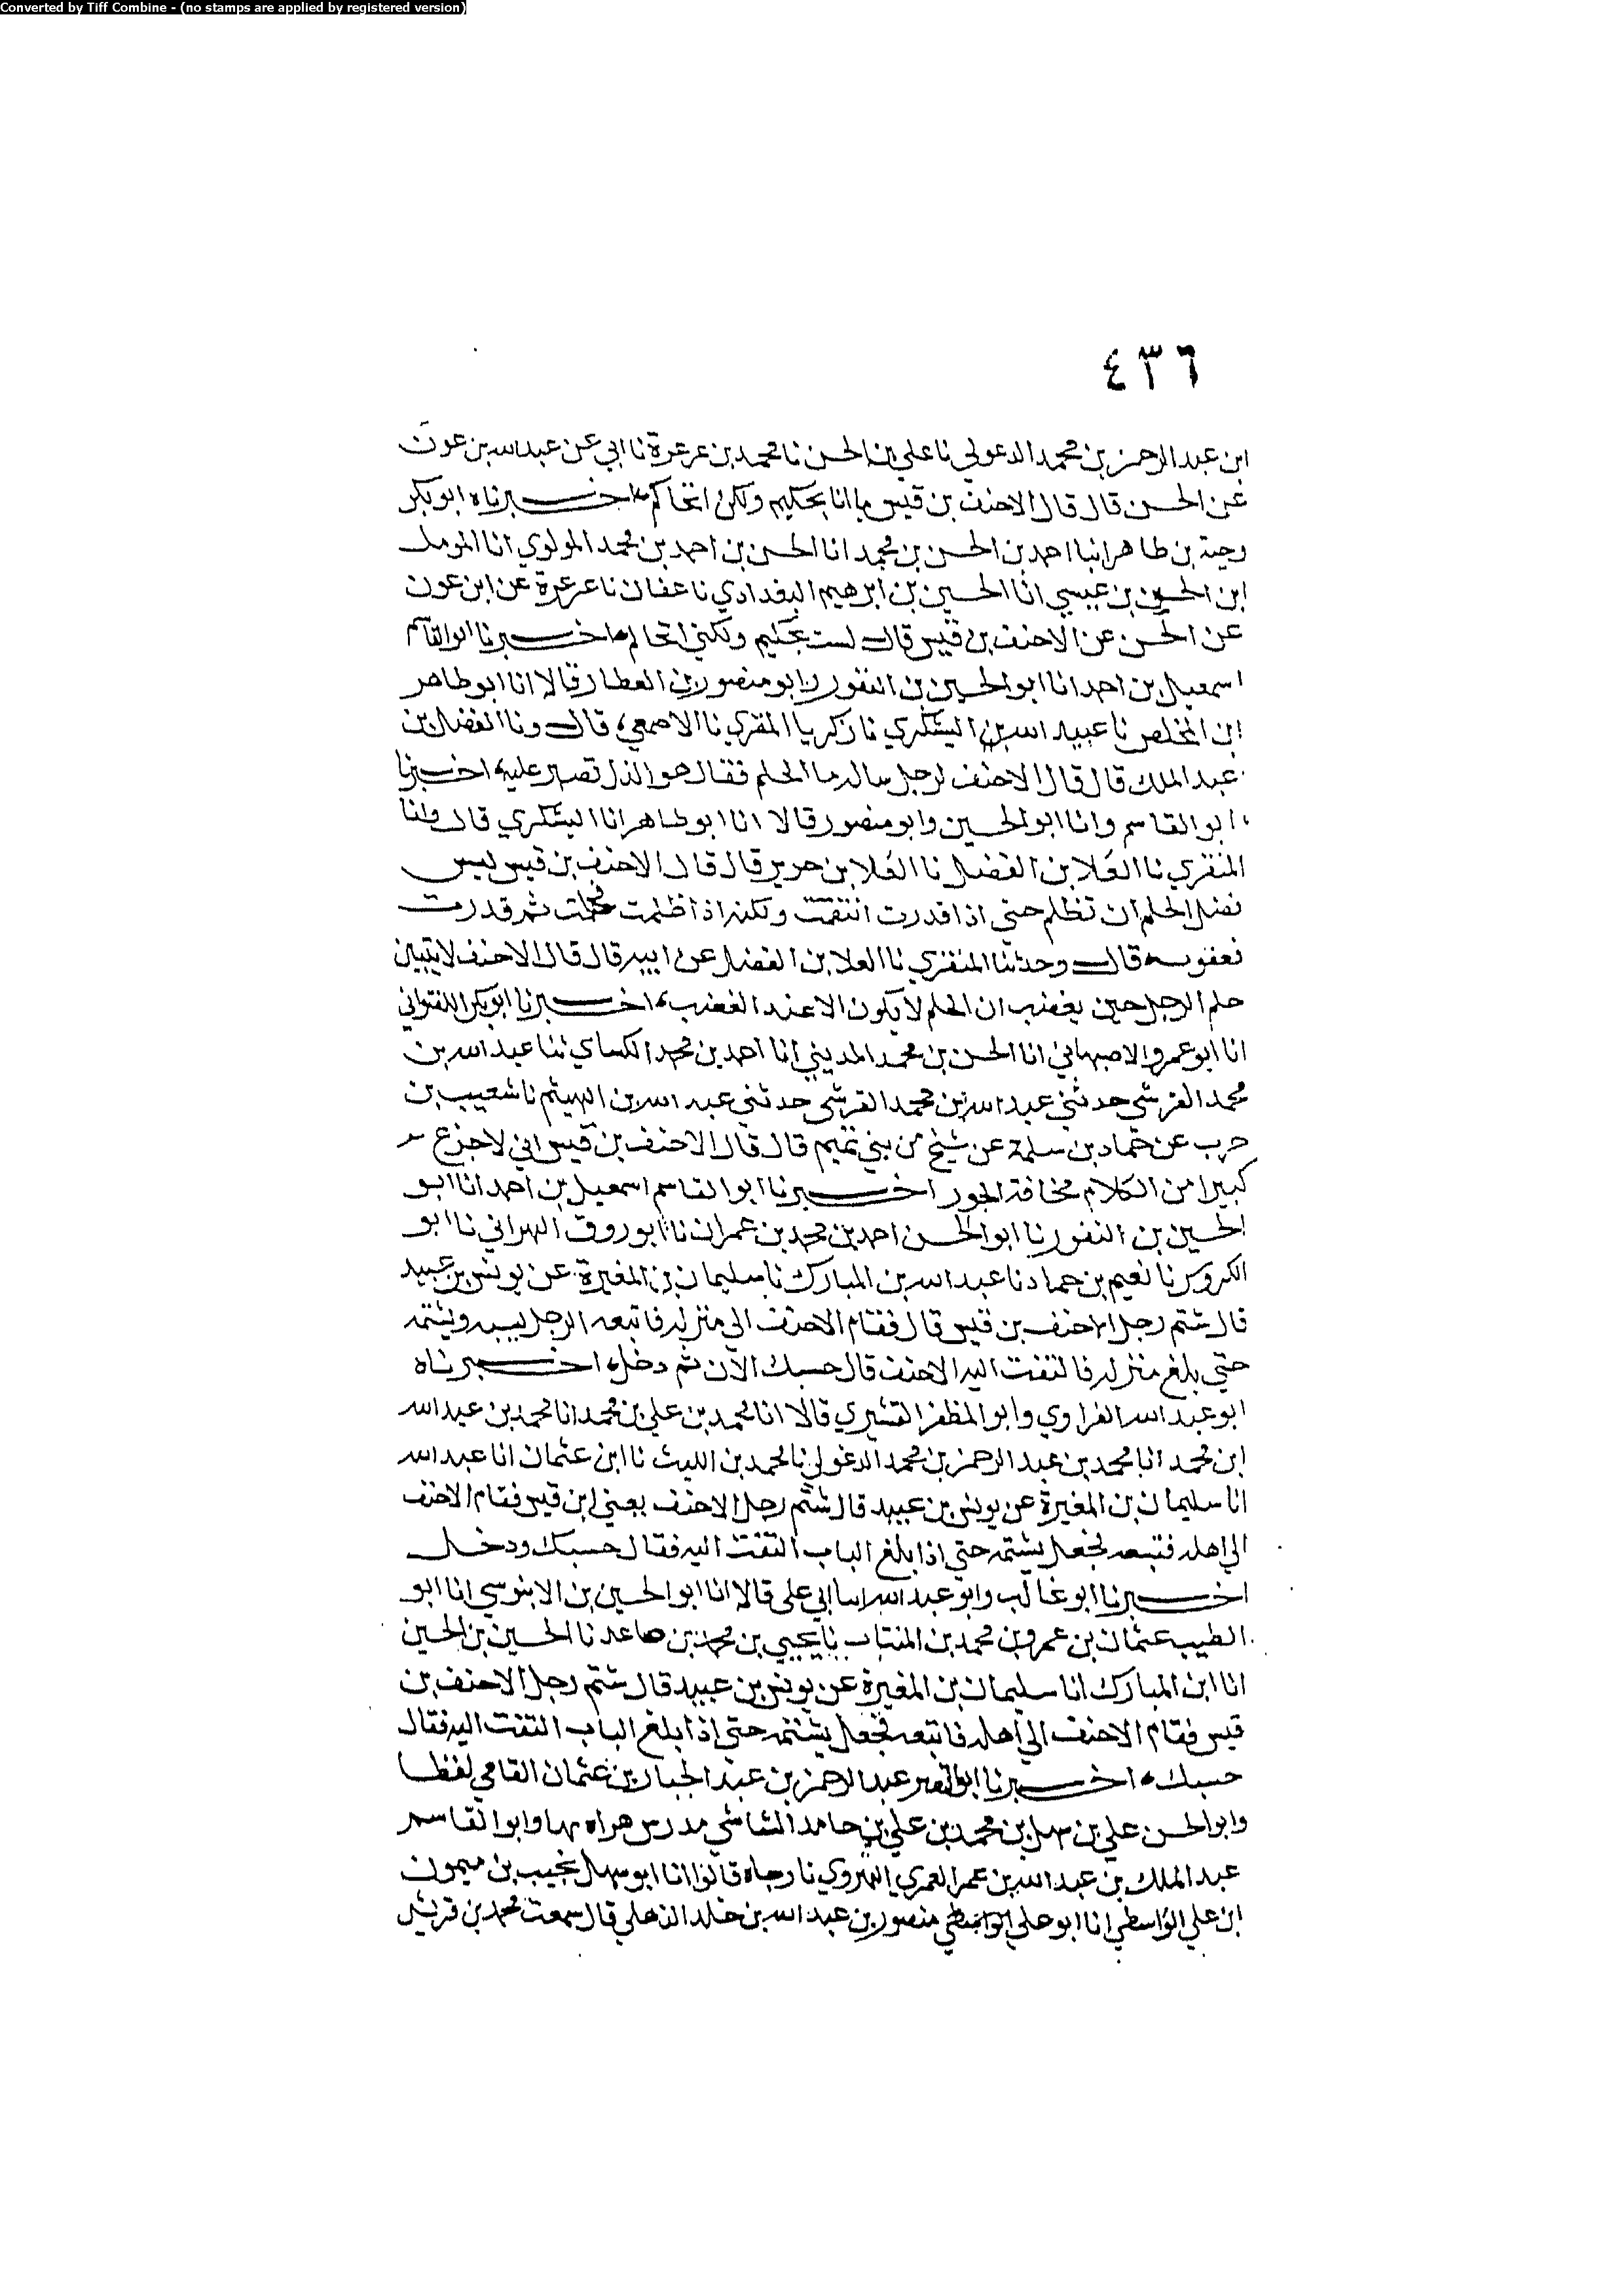 Converted by Tiff Combine - (no stamps are applied by registered version)
٤٣٦
ابن عبد الرحمن بن محمد الدغولي نا علي بن الحسن نا محمد بن عرعرة نا ابي عن عبد الله بن عون
عن الحسن قال قال الاحنف بن قيس ما انا بحكيم ولكن اتحاكم اخبرناه ابو بكر
وجيه بن طاهر انبا احمد بن الحسن بن محمد انا الحسن بن احمد بن محمد المولوي انا المومل
ابن الحسين بن عيسي انا الحسين بن ابرهيم البغدادي نا عفان نا عرعرة عن ابن عون
عن الحسن عن الاحنف بن قيس قال لست بحليم ولكني اتحالم اخبرنا ابو القاسم
اسمعيل بن احمد انا ابو الحسين بن النقور وابو منصور بن العطار قالا انا ابو طاهر
ابن المخلص نا عبيد الله بن اليشكري نا زكريا المقري نا الاصمعي قال ونا الفضل بن
عبد الملك قال قال الاحنف لرجل ساله ما الحلم فقال هو الذل تصبر عليه اخبرنا
ابو القاسم وانا ابو الحسين وابو منصور قالا انا ابو طاهر انا اليشكري قال وانا
المنقري نا العلا بن الفضل نا العلا بن حرير قال قال الاحنف بن قيس ليس
فضل الحلم ان تظلم حتي اذا قدرت انتقمت ولكنه اذا ظلمت فحلمت ثم قدرت
فعفوت قال وحدثنا المنقري نا العلا بن الفضل عن ابيه قال قال الاحنف لا يتبين
حلم الرجل حين يغضب ان الحلم لا يكون الا عند الغضب اخبرنا ابو بكر اللفتواني
انا ابو عمرو الاصبهاني انا الحسن بن محمد المديني انا احمد بن محمد الكساي ثنا عبد الله بن
محمد القرشي حدثني عبد الله بن محمد القرشي حدثني عبد الله بن الهيثم نا شعيب بن
حرب عن حماد بن سلمة عن شيخ من بني تميم قال قال الاحنف بن قيس اني لاجزع
كبيرا من الكلام مخافة الجور اخبرنا ابو القاسم اسمعيل بن احمد انا ابو
الحسين بن النقور نا ابو الحسن احمد بن محمد بن عمران نا ابو روق الهراني نا ابو
الكروس نا نعيم بن حماد نا عبد الله بن المبارك نا سليمان بن المغيرة عن يونس بن عبيد
قال شتم رجل الاحنف بن قيس قال فقام الاحنف الي منزله فاتبعه الرجل يسبه ويشتمه
حتي بلغ منزله فالتفت اليه الاحنف قال حسبك الآن ثم دخل اخبرناه
ابو عبد الله الفراوي وابو المظفر القشيري قالا انا محمد بن علي بن محمد انا محمد بن عبد الله
ابن محمد انا محمد بن عبد الرحمن بن محمد الدغولي نا محمد بن الليث نا ابن عثمان انا عبد الله
انا سليمان بن المغيرة عن يونس بن عبيد قال شتم رجل الاحنف يعني ابن قيس فقام الاحنف
الي اهله فتبعه فجعل يشتمه حتي اذا بلغ الباب التفت اليه فقال حسبك ودخل
اخبرنا ابو غالب وابو عبد الله ابنا ابي علي قالا انا ابو الحسين بن الابنوسي انا ابو
الطيب عثمان بن عمرو بن محمد بن المنتاب نا يحيي بن محمد بن صاعد نا الحسين بن الحسين
انا ابن المبارك انا سليمان بن المغيرة عن يونس بن عبيد قال شتم رجل الاحنف بن
قيس فقام الاحنف الي اهله فاتبعه فجعل يشتمه حتي اذا بلغ الباب التفت اليه فقال
حسبك اخبرنا ابو النصر عبد الرحمن بن عبد الجبار بن عثمان القامي لفظا
وابو الحسن علي بن سهل بن محمد بن علي بن حامد الشاشي مدرس هراه بها وابو القاسم
عبد الملك بن عبد الله بن عمر العمري الهروي نا رجاه قالوا انا ابو سهل نجيب بن ميمون
ابن علي الواسطي انا ابو علي منصور بن عبد الله بن خلد الذهلي قال سمعت محمد بن قريش